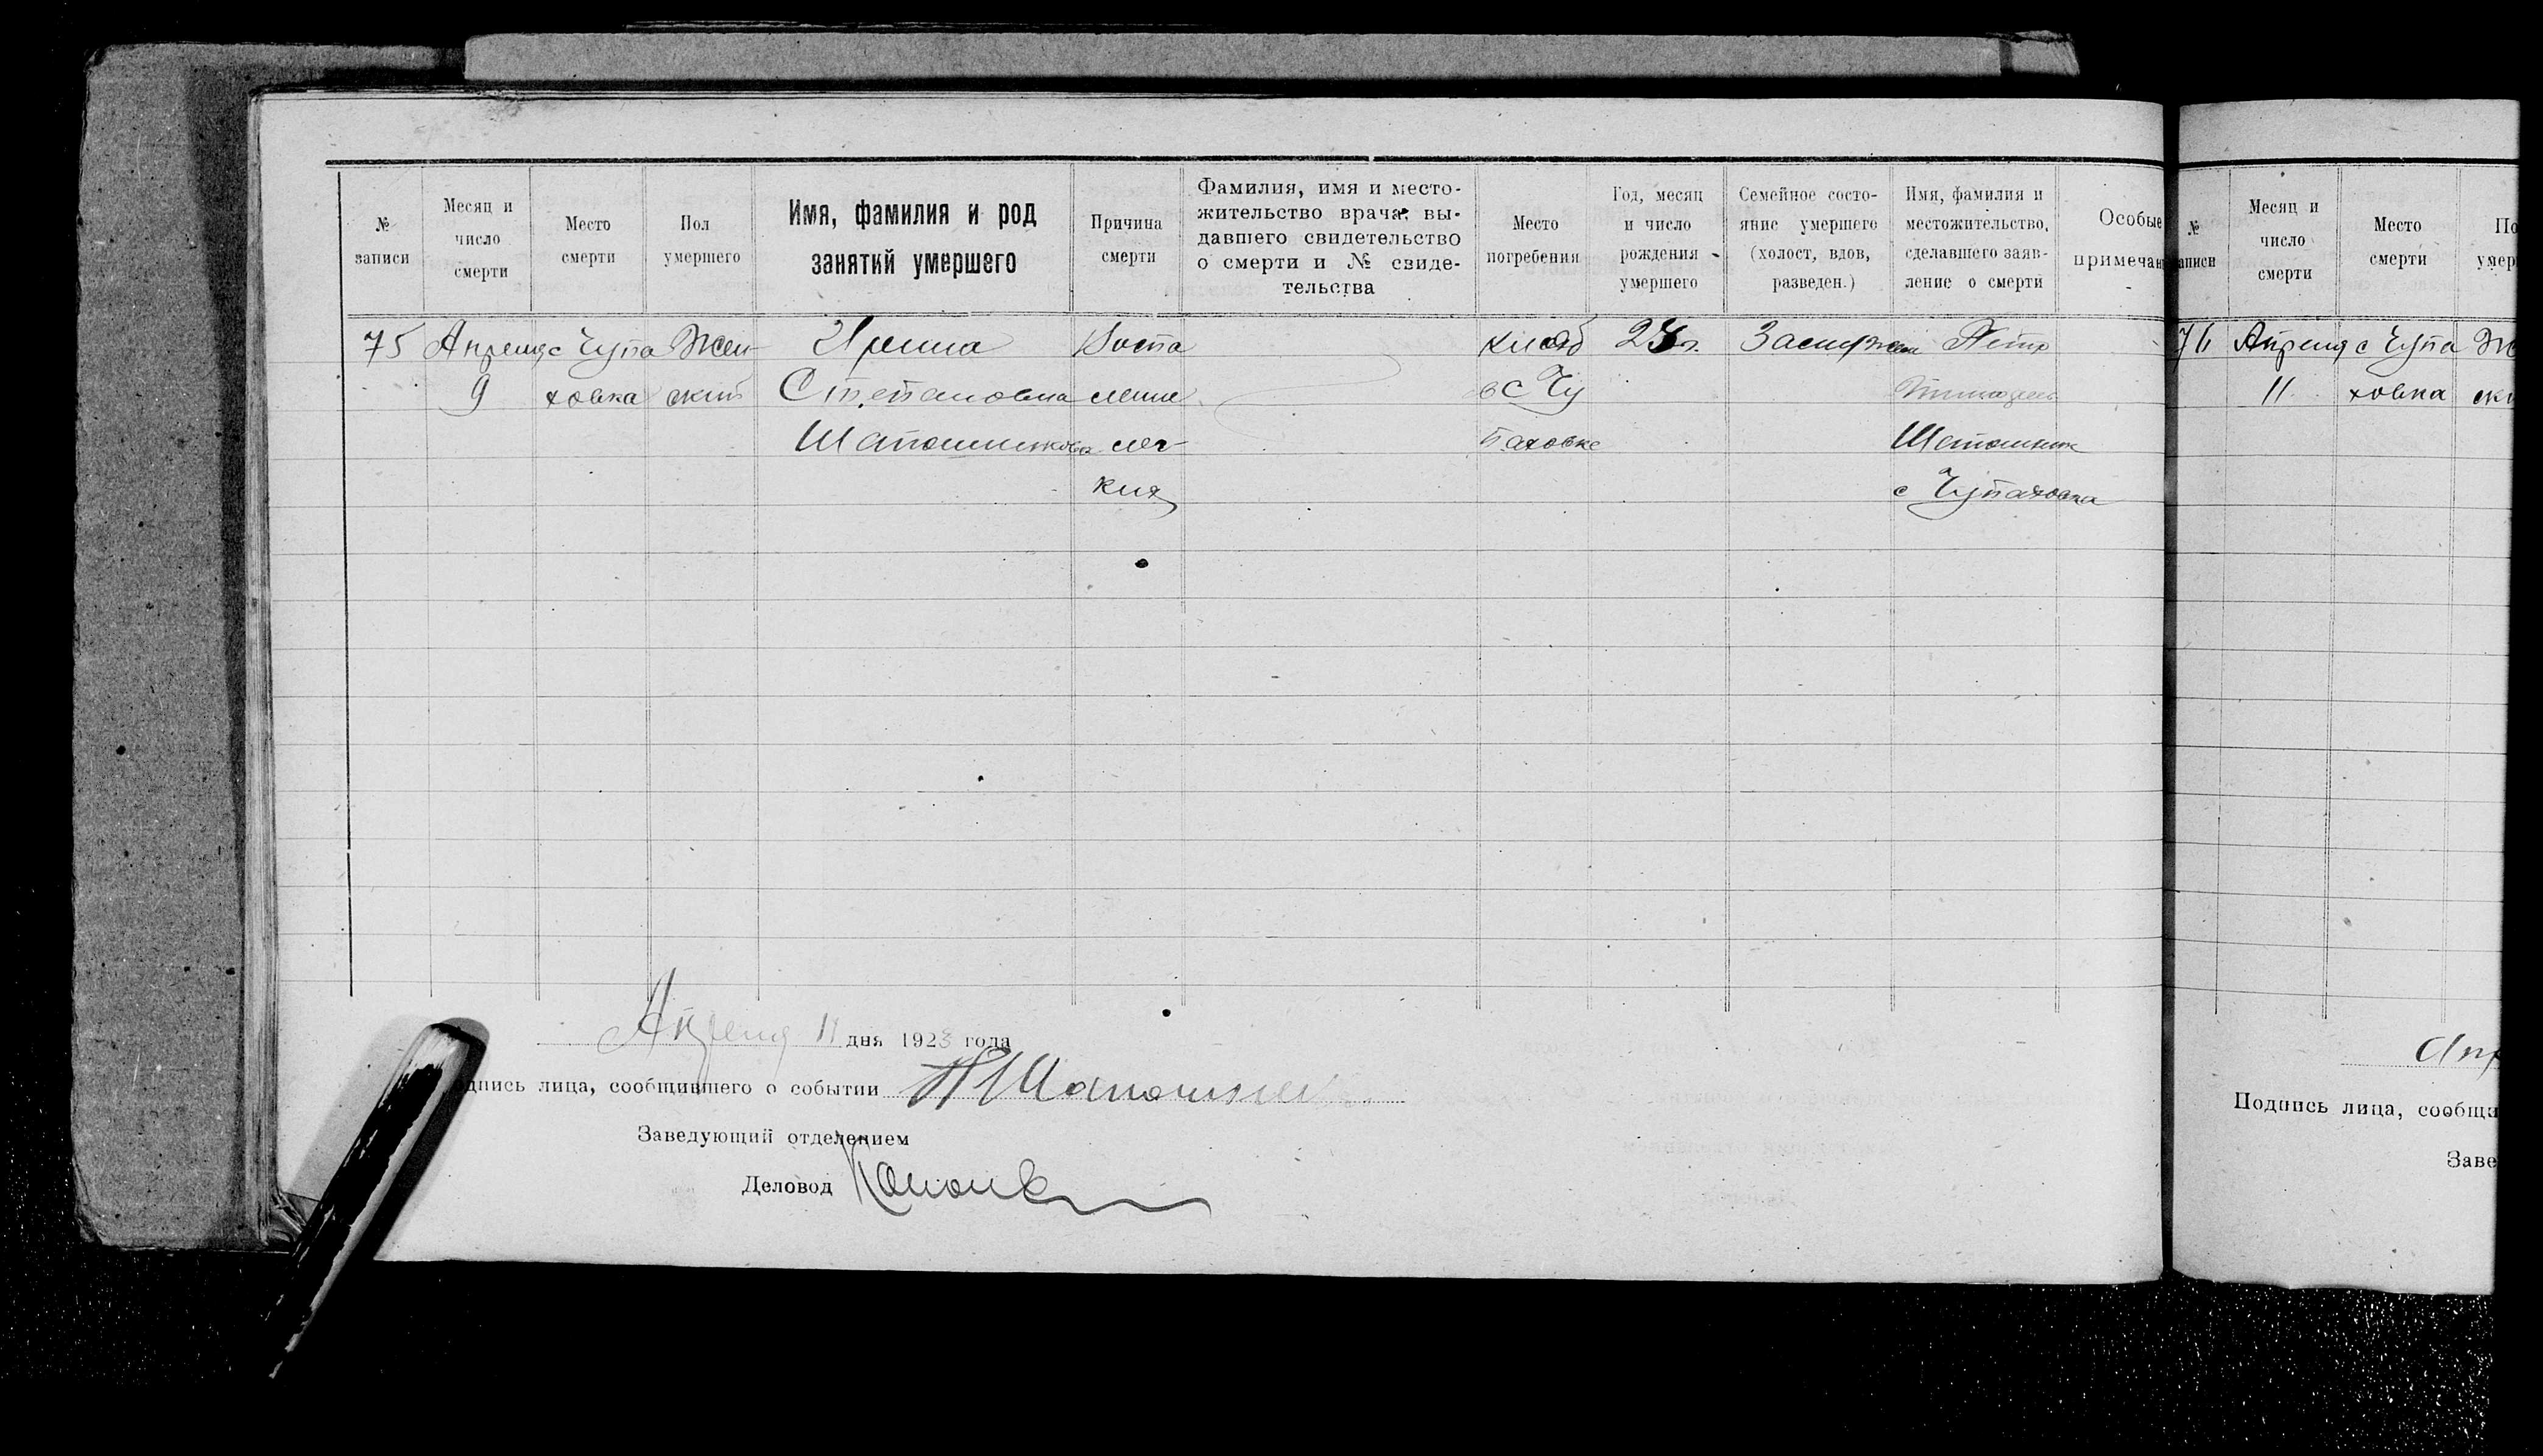 № записи
Месяц и число смерти
Место смерти
Пол умершего
Имя, фамилия и род занятий умершего
Причина смерти
Фамилия, имя и место-
жительство врача, вы-
давшего свидетельство
о смерти и № свиде-
тельства
Место погребения
Год, месяц и число рождения умершего
Семейное состо-
яние умершего
(холост, вдов,
разведен.)
Имя, фамилия и
местожительство,
сделавшего заяв-
ление о смерти
Особые
примечан
75 Апреля с Чупа Жен- Ирина Воспа кладб 28 г. Замужем Петр
9 ховка ский Степановна ление в с Чу
Шапошникова лег- паховке Шапошник
ких с Чупаховка
Апреля 11 дня 1923 года
одпись лица, сообщившего о событии П Шапошник
Заведующий отделением
Деловод
№
аписи
Месяц и
число
смерти
Место
смерти
По
умер
76 Апреля с Чупа Же
11 ховка ски
Апр
Подпись лица, сообщи
Заве